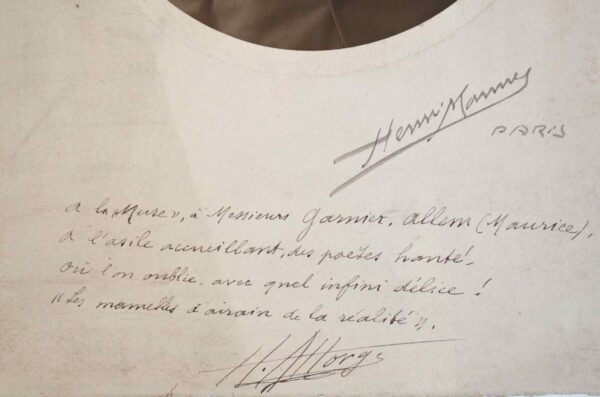 Henri Manuel
PARIS
à la « Muse », à Messieurs Garnier, Allem (Maurice),
à l'asile accueillant, des poètes hanté,
où l'on oublie, avec quel infini délice !
« Les mamelles d'airain de la réalité ».
H. Allorge